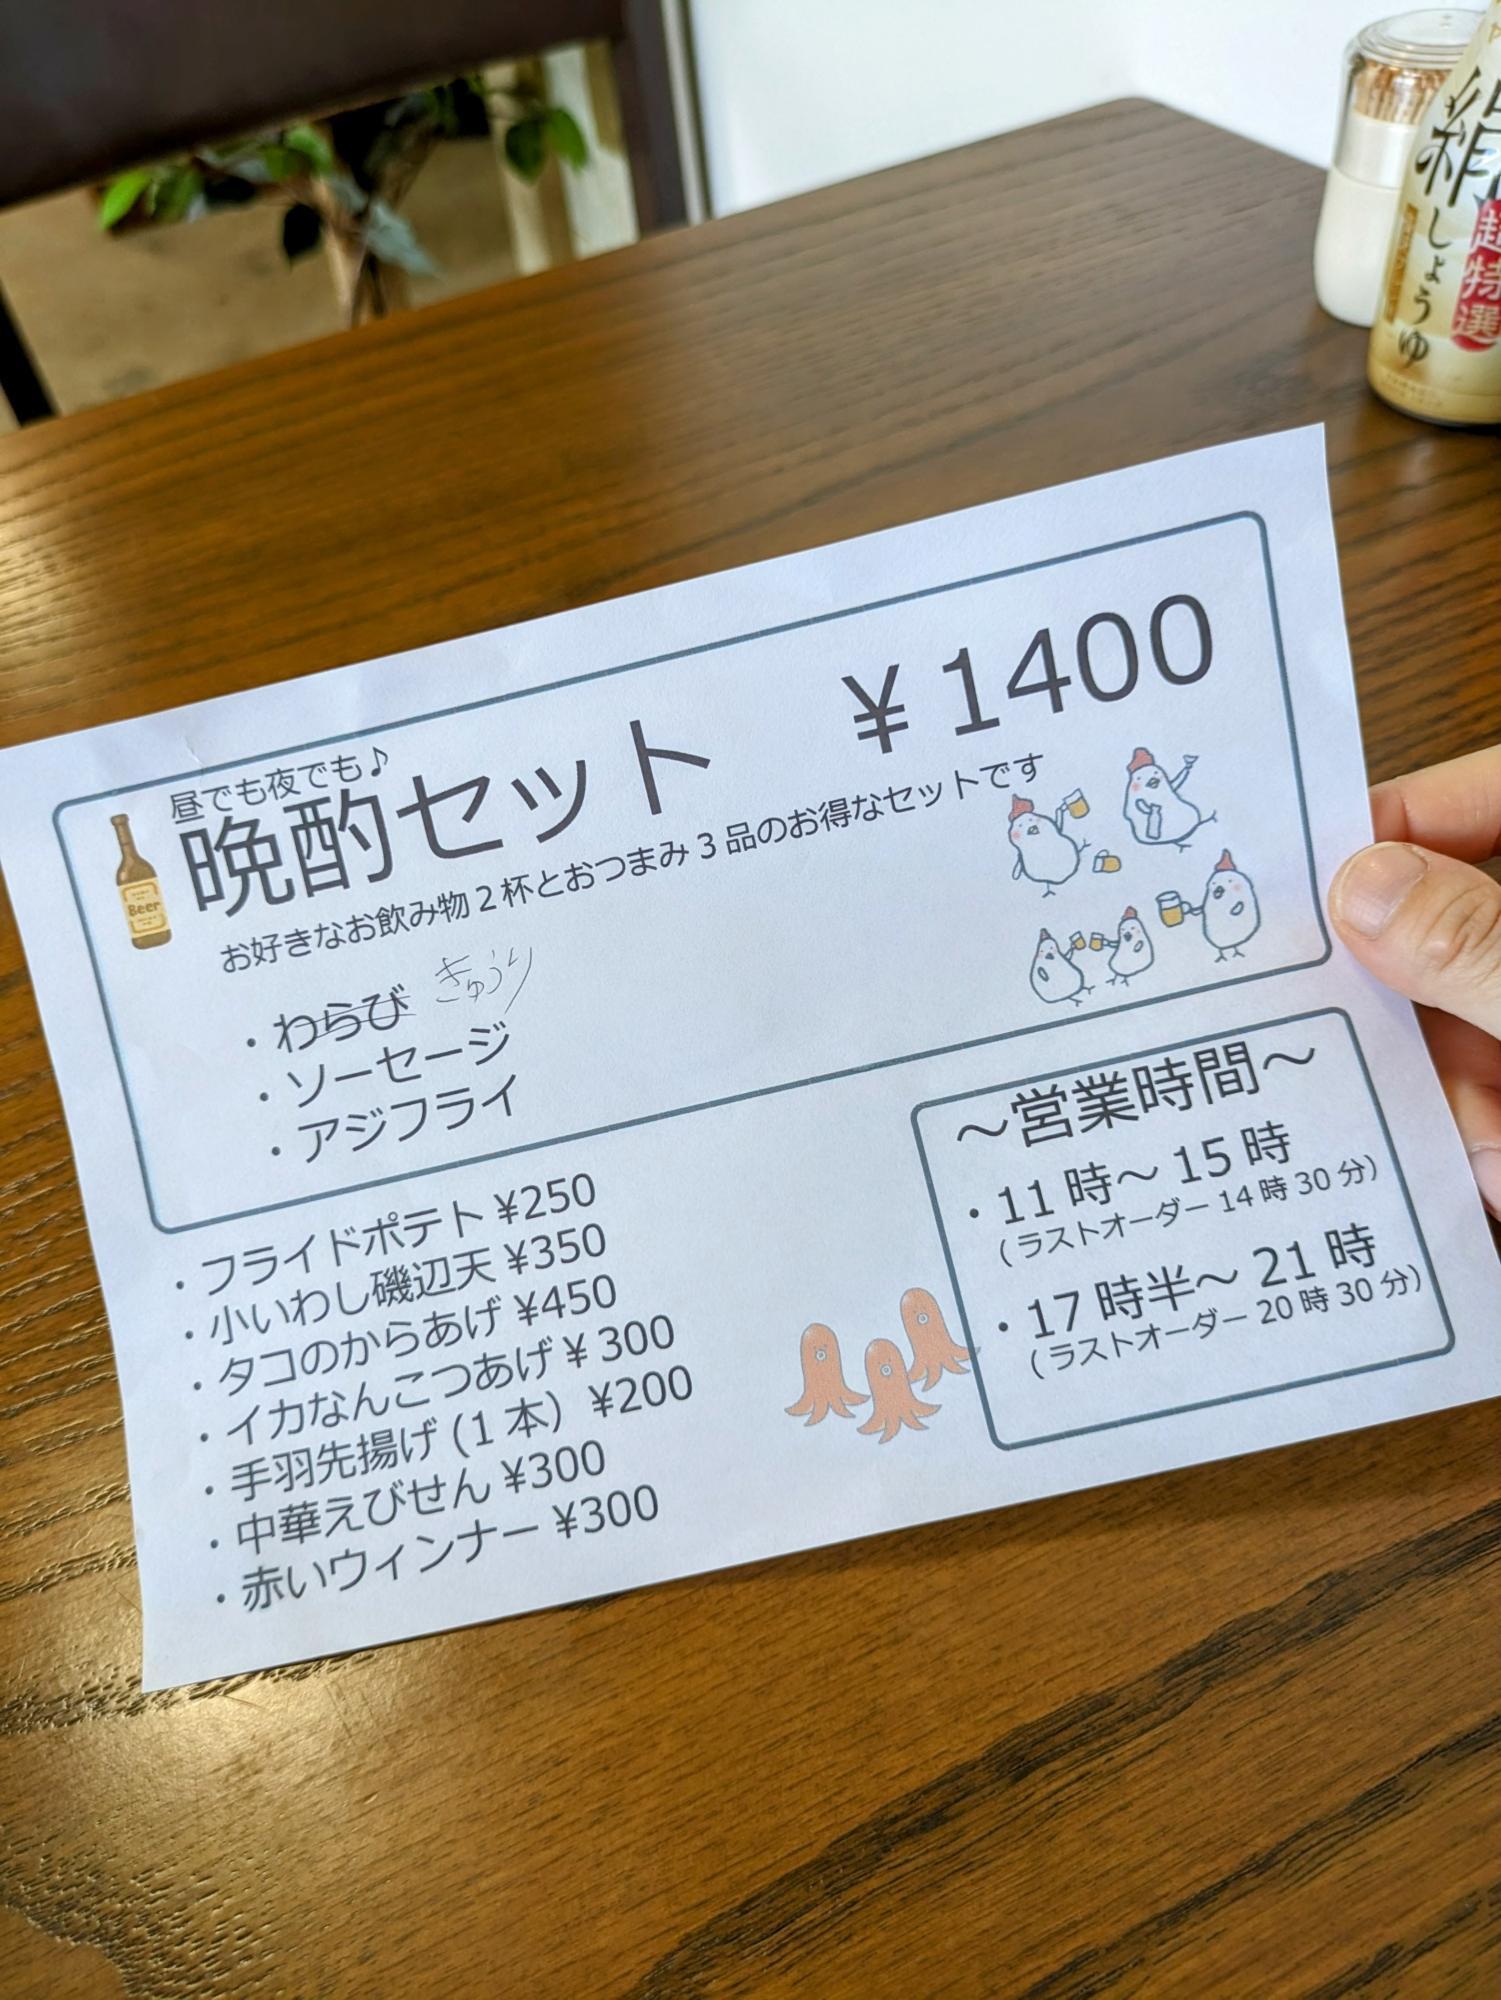 絹しょうゆ
超特選
昼でも夜でも♪
晩酌セット ￥1400
お好きなお飲み物2杯とおつまみ3品のお得なセットです
Beer
・わらび きゅうり
・ソーセージ
・アジフライ
・フライドポテト ¥250
・小いわし磯辺天 ¥350
・タコのからあげ ¥450
・イカなんこつあげ ¥300
・手羽先揚げ(1本) ¥200
・中華えびせん ¥300
・赤いウィンナー ¥300
～営業時間～
・11時～15時
(ラストオーダー14時30分)
・17時半～21時
(ラストオーダー20時30分)